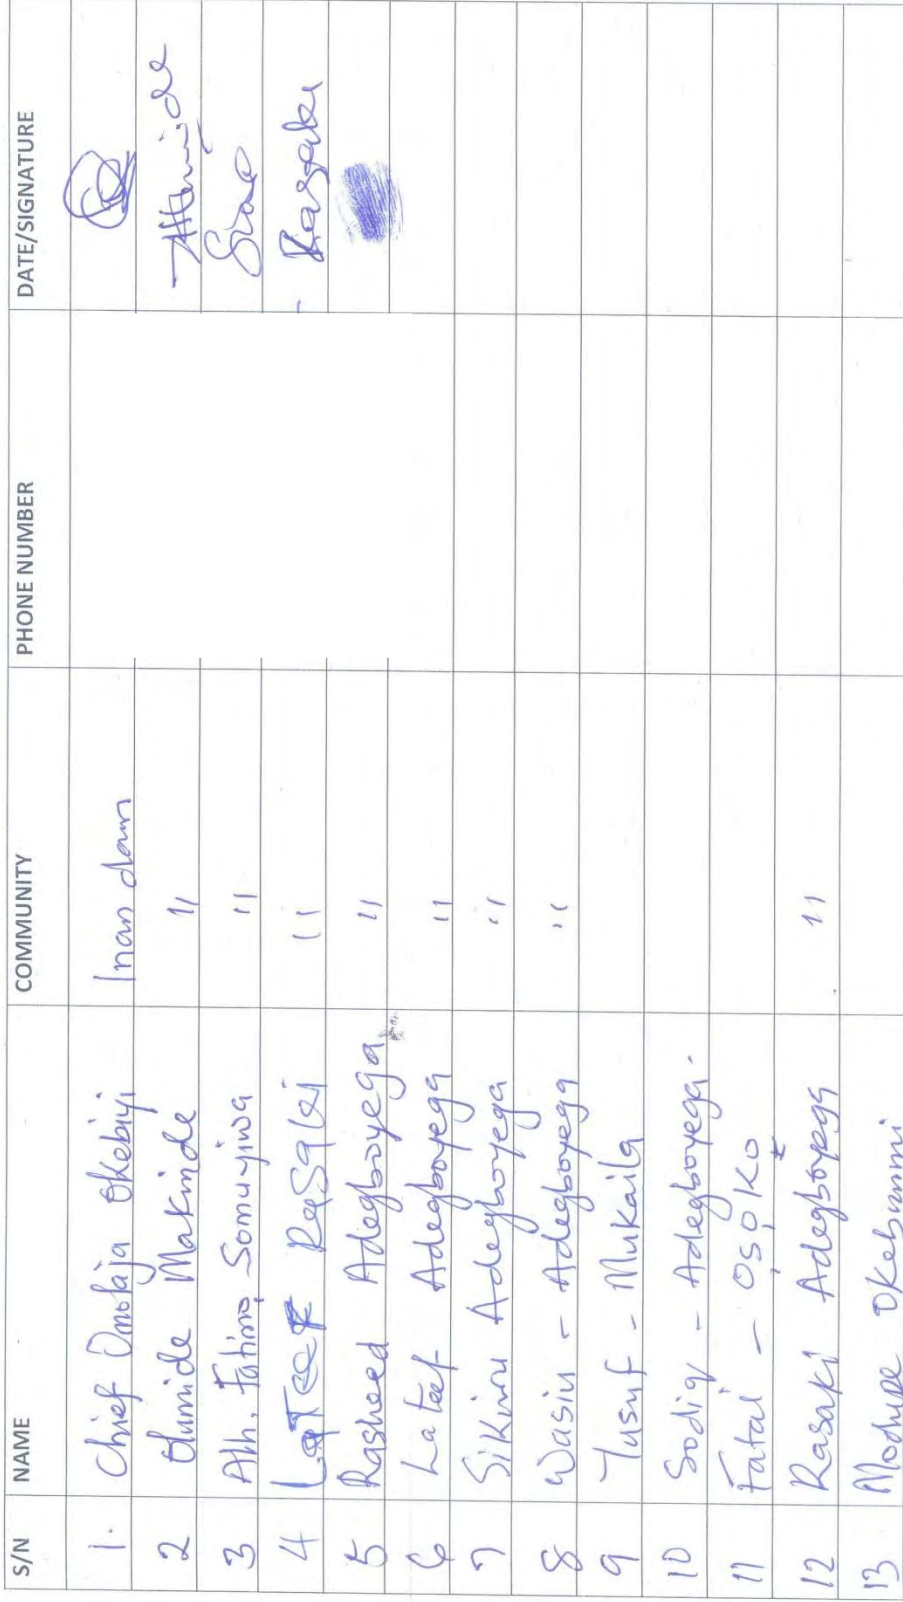 S/N NAME COMMUNITY PHONE NUMBER DATE/SIGNATURE
1. Chief Omolaja Okebiyi Inan dam
2 Olumide Makinde "
3 Alh. Fatimo Somuyiwa "
4 LaTeeF RaSaki " - Rasaki
5 Rasheed Adegboyega "
6 Lateef Adegboyega "
7 Sikiru Adegboyega "
8 Wasiu - Adegboyega "
9 Yusuf - Mukaila
10 Sodiq - Adegboyega.
11 Fatai - Osoko
12 Rasaki Adegboyega "
13 Modupe Okebunmi